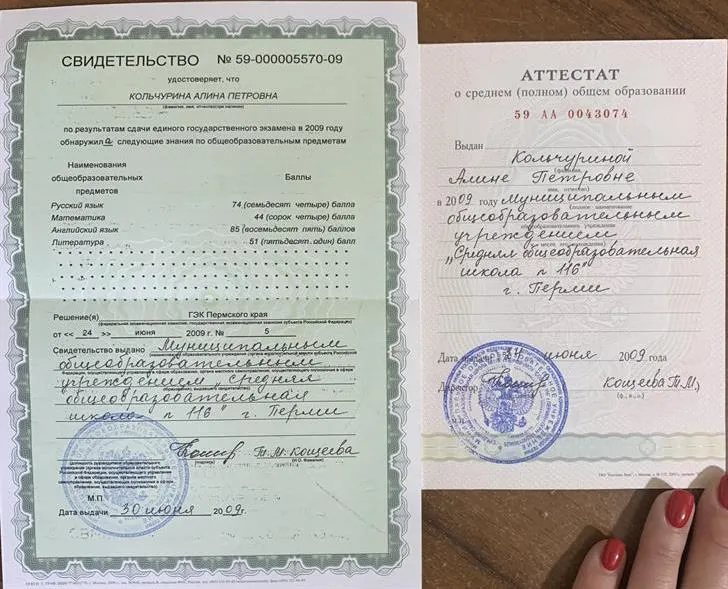 СВИДЕТЕЛЬСТВО № 59-000005570-09
удостоверяет, что
КОЛЬЧУРИНА АЛИНА ПЕТРОВНА
(фамилия, имя, отчество)
по результатам сдачи единого государственного экзамена в 2009 году
обнаружила следующие знания по общеобразовательным предметам
Наименования
общеобразовательных
предметов
Баллы
Русский язык 74 (семьдесят четыре) балла
Математика 44 (сорок четыре) балла
Английский язык 85 (восемьдесят пять) баллов
Литература 51 (пятьдесят один) балл
Решение(я) ГЭК Пермского края
от << 24 >> июня 2009 г. № 5
Свидетельство выдано Муниципальным
общеобразовательным
учреждением „Средняя
общеобразовательная
школа n 116" г. Перми
Т.М. Кощеева
(подпись)
М.П.
Дата выдачи 30 июня 2009г.
АТТЕСТАТ
о среднем (полном) общем образовании
59 АА 0043074
Выдан Кольчуриной
Алине Петровне
в 2009 году Муниципальным
общеобразовательным
учреждением
„Средняя общеобразовательная
школа n 116"
г. Перми
Дата выдачи июня 2009 года
Директор Кощеева Т.М.
(ф., и., о.)